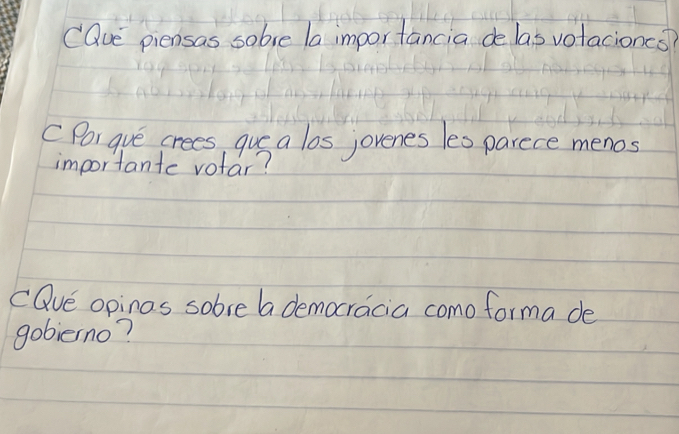 ¿Qué piensas sobre la importancia de las votaciones?
¿Por qué crees que a los jovenes les parece menos
importante votar?
¿Qué opinas sobre la democrácia como forma de
gobierno?